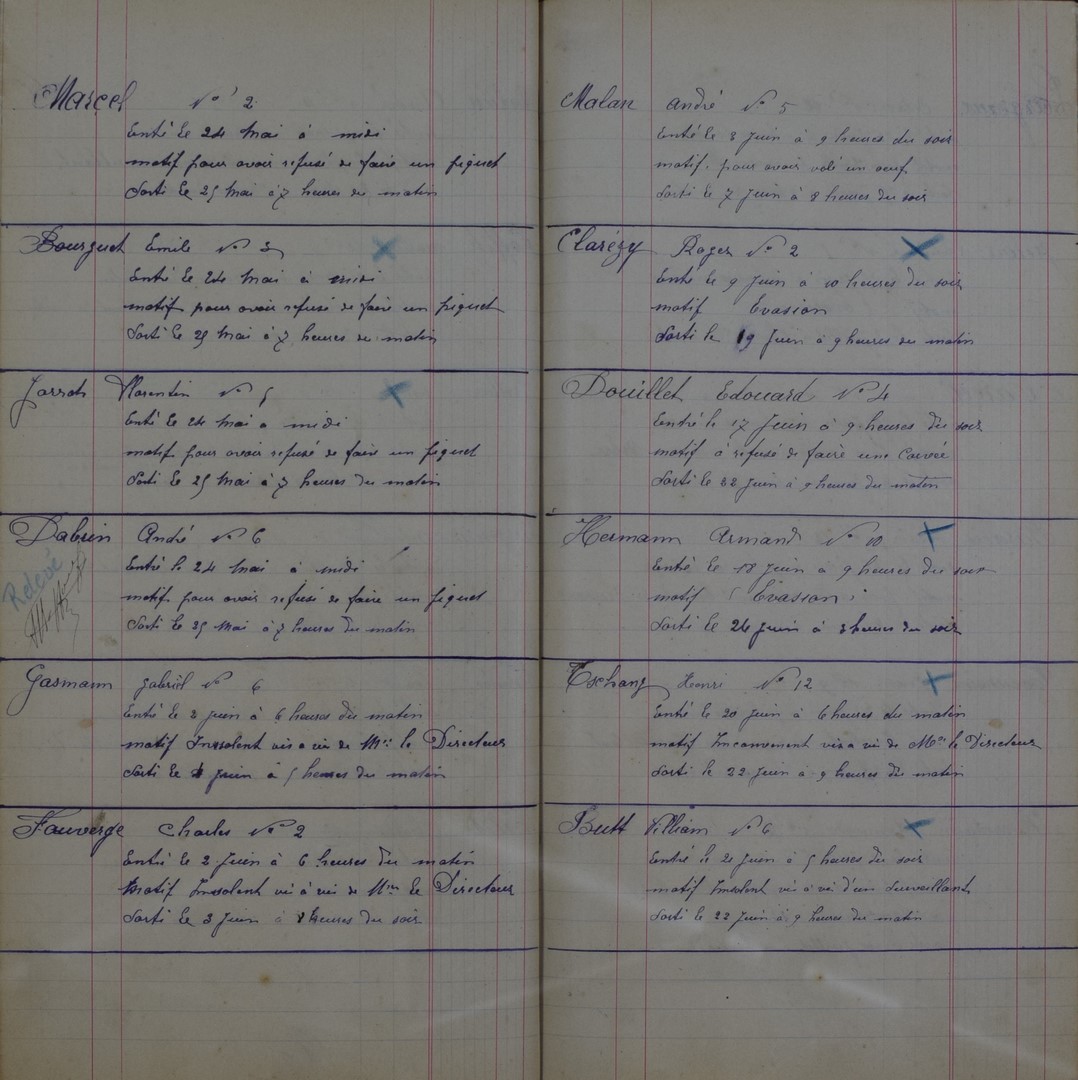 Marcel N° 2
Entré le 24 Mai à midi
motif pour avoir refusé de faire un piquet
Sorti le 25 Mai à 7 heures du matin
Bourguet Emile N° 3
Entré le 24 Mai à midi
motif pour avoir refusé de faire un piquet
Sorti le 25 Mai à 7 heures du matin
Florentin N° 5
Entré le 24 Mai a midi
motif pour avoir refusé de faire un piquet
Sorti le 25 Mai à 7 heures du matin
Dabrin André N° 6
Relevé
Entré le 24 Mai à midi
motif pour avoir refusé de faire un piquet
Sorti le 25 Mai à 7 heures du matin
Gasmann Gabriel N° 6
Entré le 2 Juin à 6 heures du matin
motif Inssolent vis a vis de Mr le Directeur
Sorti le Juin à 5 heures du matin
Fauverge Charles N° 2
Entré le 2 Juin à 6 heures du matin
Motif Inssolent vis à vis de Mr le Directeur
Sorti le 3 Juin à 8 heures du soir
Malan André N° 5
Entré le 3 Juin à 9 heures du soir
motif. pour avoir volé un oeuf
Sorti le 7 Juin à 8 heures du soir
Clarézy Roger N° 2
Entré le 9 Juin à 10 heures du soir
motif Evasion
Sorti le 19 Juin à 9 heures du matin
Douillet Edouard N° 4
Entré le 17 Juin à 9 heures du soir
motif à refusé de faire une Corveé
Sorti le 22 Juin à 9 heures du matin
Hermann Armand N° 10
Entré le 18 Juin à 9 heures du soir
motif Evasson
Sorti le 24 Juin à 8 heures du soir
Tschanz Henri N° 12
Entré le 20 Juin à 6 heures du matin
motif Inconvenent vis a vis de Mr le Directeur
Sorti le 22 Juin à 9 heures du matin
Butt William N° 6
Entré le 21 Juin à 5 heures du soir
motif Insolent vis à vis d'un Surveillant
Sorti le 22 Juin à 9 heures du matin